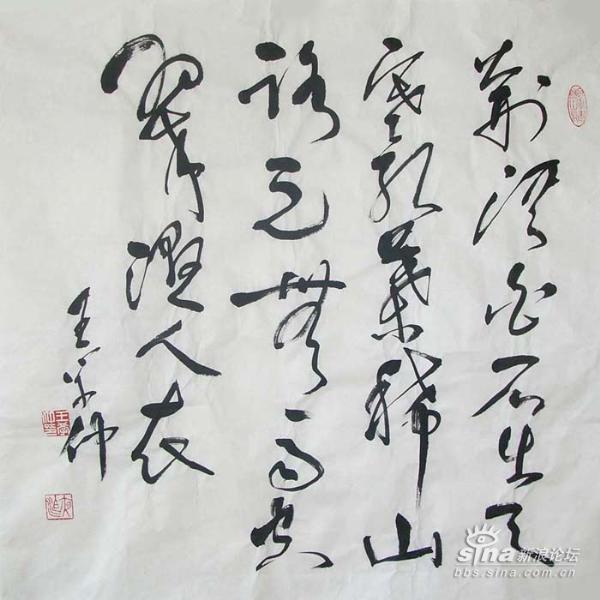 荆溪白石出天
寒红葉稀山
路元無雨空
翠濕人衣
王学仲
sina新浪论坛
bbs.sina.com.cn